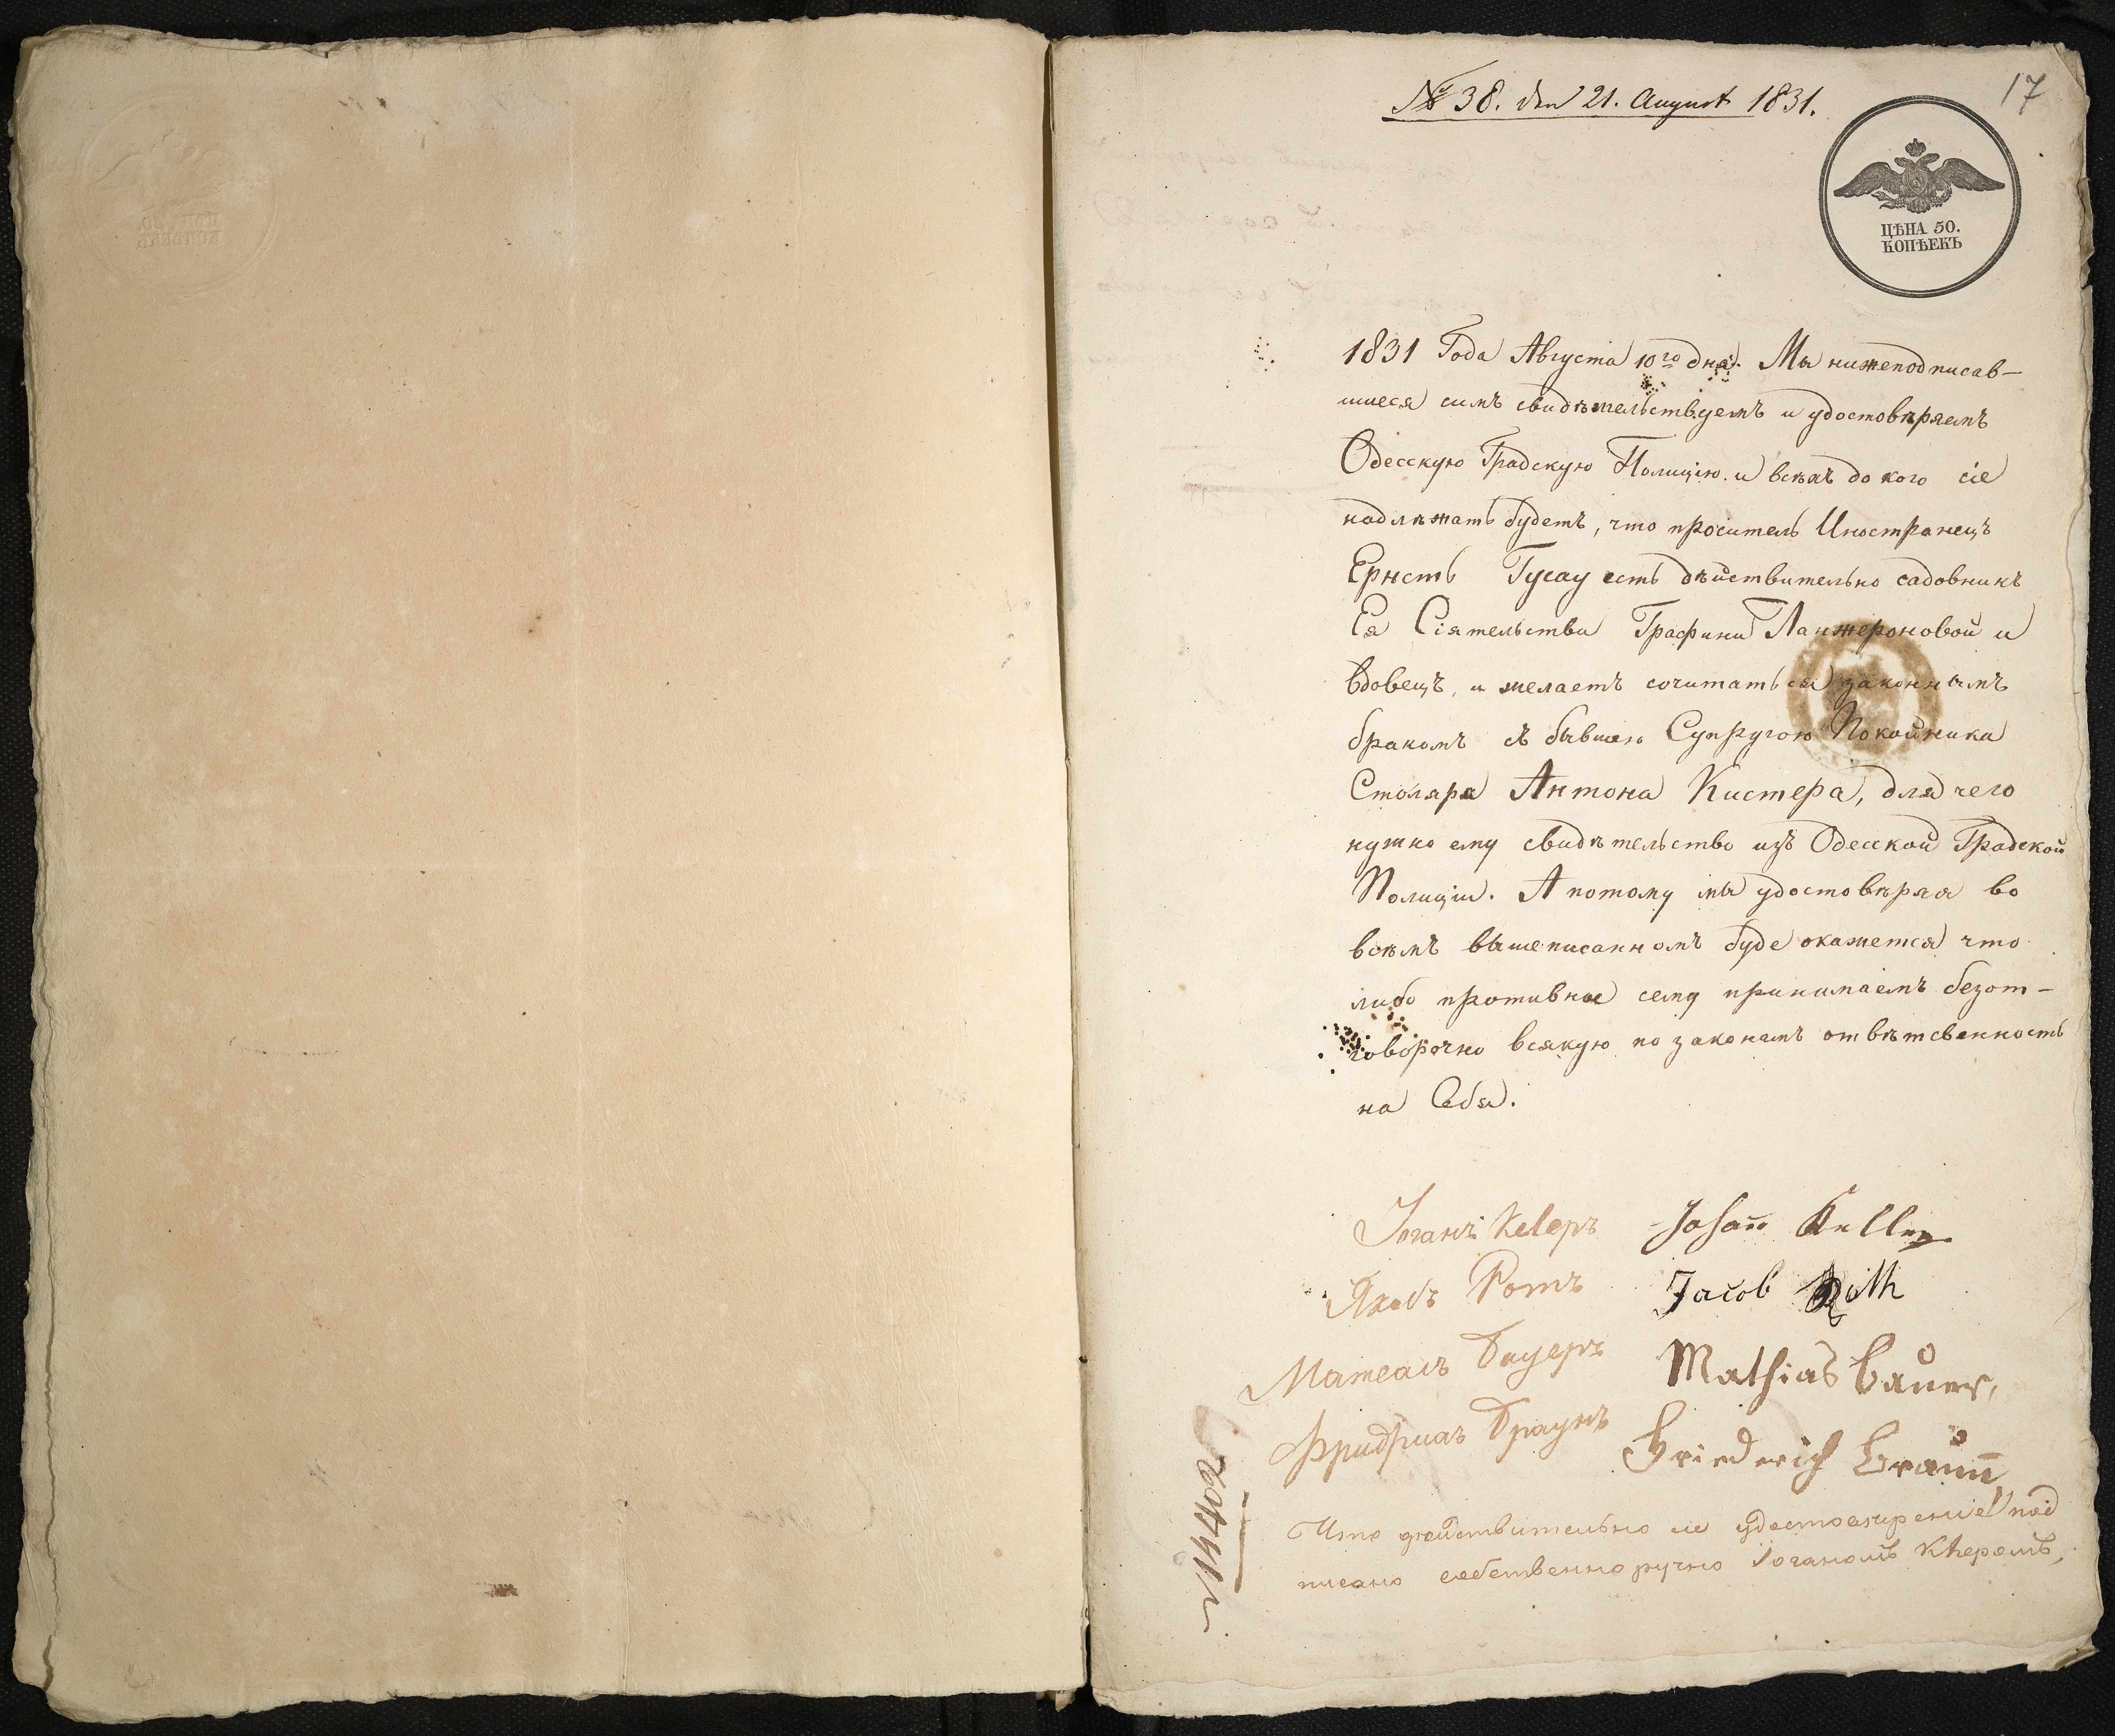 № 38. den 21. August 1831.
17
ЦѢНА 50.
КОПѢЕКЪ
1831 Года Августа 10го дня. Мы нижеподписав-
шиеся симъ свидѣтельствуемъ и удостовѣряемъ
Одесскую Градскую Полицію и всѣхъ до кого сіе
надлѣжать будетъ, что проситель Иностранецъ
Ернстъ Гусау есть дѣйствительно садовникъ
Ея Сіятельства Графини Ланжероновой и
вдовецъ, и желаетъ сочитаться законнымъ
бракомъ съ бывшею Супругою Покойника
Столяра Антона Кистера, для чего
нужно ему свидѣтельство изъ Одесской Градской
Полиціи. А потому мы удостовѣряя во
всѣмъ вышеписанномъ буде окажется что
либо противное сему принимаемъ безот-
говорочно всякую по законамъ отвѣтсвенность
на Себя.
Іоганъ Келеръ Johann Keller
Якобъ Ротъ Jacob Roth
Матеасъ Бауеръ Mathias Bauer,
Фридрихъ Браунъ Friederich Braun
Что действительно сіе удостовѣреніе под
писано собственноручно Іоганомъ